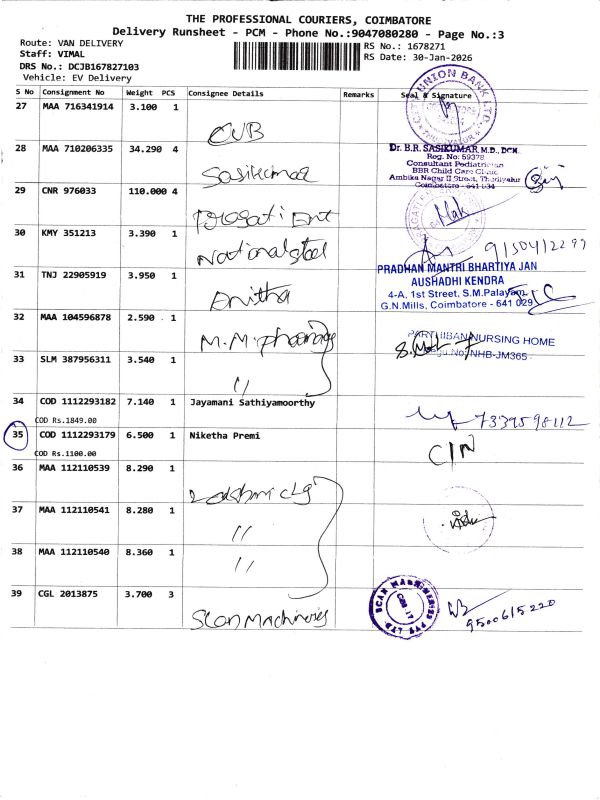 THE PROFESSIONAL COURIERS, COIMBATORE
Delivery Runsheet - PCM - Phone No.:9047080280 - Page No.:3
Route: VAN DELIVERY
Staff: VIMAL
DRS No.: DCJB167827103
Vehicle: EV Delivery
RS No.: 1678271
RS Date: 30-Jan-2026
S No Consignment No Weight PCS Consignee Details Remarks Seal & Signature
27 MAA 716341914 3.100 1 CUB
28 MAA 710206335 34.290 4 Sasikumar
Dr. B.R. SASIKUMAR, M.D., DCH.
Reg. No: 59378
Consultant Pediatrician
BBR Child Care Clinic
Ambika Nagar II Street, Thudiyalur
Coimbatore - 641 034
29 CNR 976033 110.000 4
30 KMY 351213 3.390 1 National steel
31 TNJ 22905919 3.950 1 Anitha
PRADHAN MANTRI BHARTIYA JAN
AUSHADHI KENDRA
4-A, 1st Street, S.M.Palayam,
G.N.Mills, Coimbatore - 641 029
32 MAA 104596878 2.590 1 M.M. Pharmacy
PARTHIBAN NURSING HOME
NHB-JM365
33 SLM 387956311 3.540 1 "
34 COD 1112293182 7.140 1 Jayamani Sathiyamoorthy
COD Rs.1849.00
7339598112
35 COD 1112293179 6.500 1 Niketha Premi
COD Rs.1100.00
CIN
36 MAA 112110539 8.290 1 Lakshmi clg
37 MAA 112110541 8.280 1 "
38 MAA 112110540 8.360 1 "
39 CGL 2013875 3.700 3 Scan Machineries
9500615220